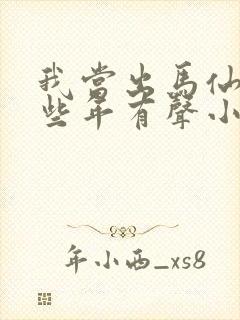 我當出馬仙
些年有聲小
年小西_xs8